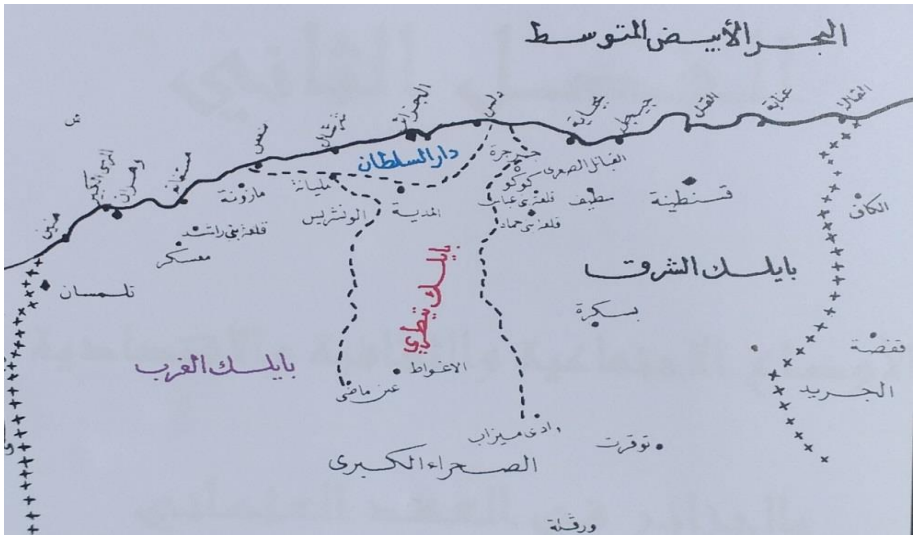 البحر الأبيض المتوسط
القالة
عنابة
القل
جيجل
بجاية
دلس
الجزائر
شرشال
تنس
مستغانم
وهران
المرسى الكبير
هنين
دار السلطان
جرجرة
كوكو
القبائل الصغرى
قلعة بني عباس
قلعة بني حماد
سطيف
قسنطينة
الكاف
مليانة
المدية
الونشريس
مازونة
قلعة بني راشد
معسكر
تلمسان
بايلك الشرق
بسكرة
بايلك تيطري
بايلك الغرب
الاغواط
عين ماضي
قفصة
الجريد
وادي ميزاب
توقرت
الصحراء الكبرى
ورقلة